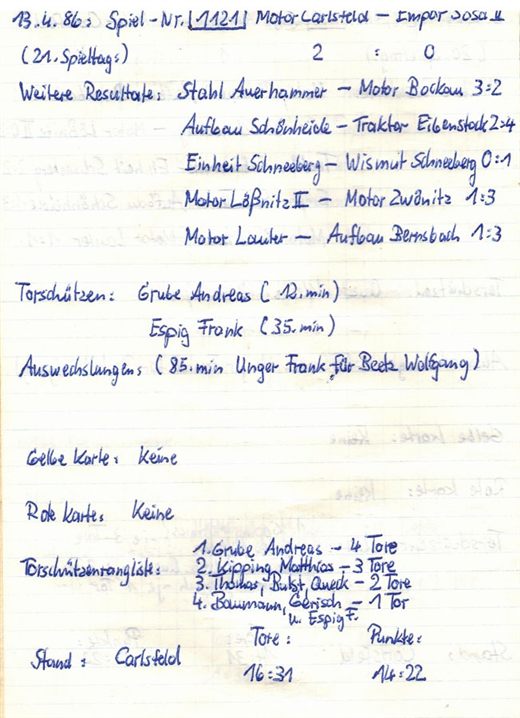 13.4.86: Spiel-Nr. 1121 Motor Carlsfeld - Empor Sosa II
(21. Spieltag:) 2 : 0
Weitere Resultate: Stahl Auerhammer - Motor Bockau 3:2
Aufbau Schönheide - Traktor Eibenstock 2:4
Einheit Schneeberg - Wismut Schneeberg 0:1
Motor Lößnitz II - Motor Zwönitz 1:3
Motor Lauter - Aufbau Bernsbach 1:3
Torschützen: Grube Andreas (12.min)
Espig Frank (35.min)
Auswechslungen: (85.min Unger Frank für Beetz Wolfgang)
Gelbe Karte: Keine
Rote Karte: Keine
1. Grube Andreas - 4 Tore
Torschützenrangliste: 2. Kipping Matthias - 3 Tore
3. Thomas, Queck - 2 Tore
4. Baumann, Gerisch - 1 Tor
u. Espig F.
Tore: Punkte:
Stand: Carlsfeld 16:31 14:22